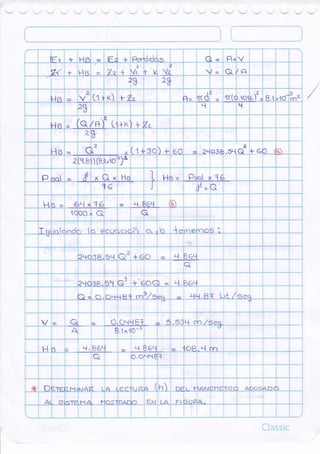 E1 + HB = E2 + Perdidas   Q = A×V
Z1 + HB = Z2 + V1²/2g + K V2²/2g   V = Q/A
HB = V²(1+K)/2g + Z2   A = πd²/4 = π(0.1016)²/4 = 8.1×10⁻³m²
HB = (Q/A)²/2g (1+K) + Z2
HB = Q²/2(9.81)(8.1×10⁻³)² × (1+30) + 60 = 24038.54Q² + 60 (a)
Pool = γ × Q × HB / 76 } HB = Pool × 76 / γ × Q
HB = 64 × 76 / 1000 × Q = 4.864 / Q (b)
Igualando la ecuación a y b tenemos:
24038.54 Q² + 60 = 4.864 / Q
24038.54 Q³ + 60Q = 4.864
Q = 0.04487 m³/seg = 44.87 Lit/seg
V = Q/A = 0.04487 / 8.1×10⁻³ = 5.534 m/seg
HB = 4.864 / Q = 4.864 / 0.04487 = 108.4 m
* DETERMINAR LA LECTURA (h) DEL MANOMETRO ADOSADO
AL SISTEMA MOSTRADO EN LA FIGURA.
Classic